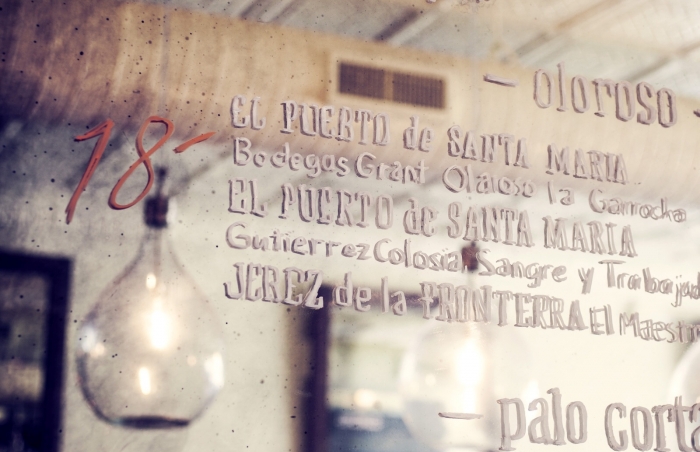 – oloroso -
18-
EL PUERTO de SANTA MARIA
Bodegas Grant Olaroso la Garrocha
EL PUERTO de SANTA MARIA
Gutierrez Colosia Sangre y
JEREZ de la FRONTERRA El
– palo